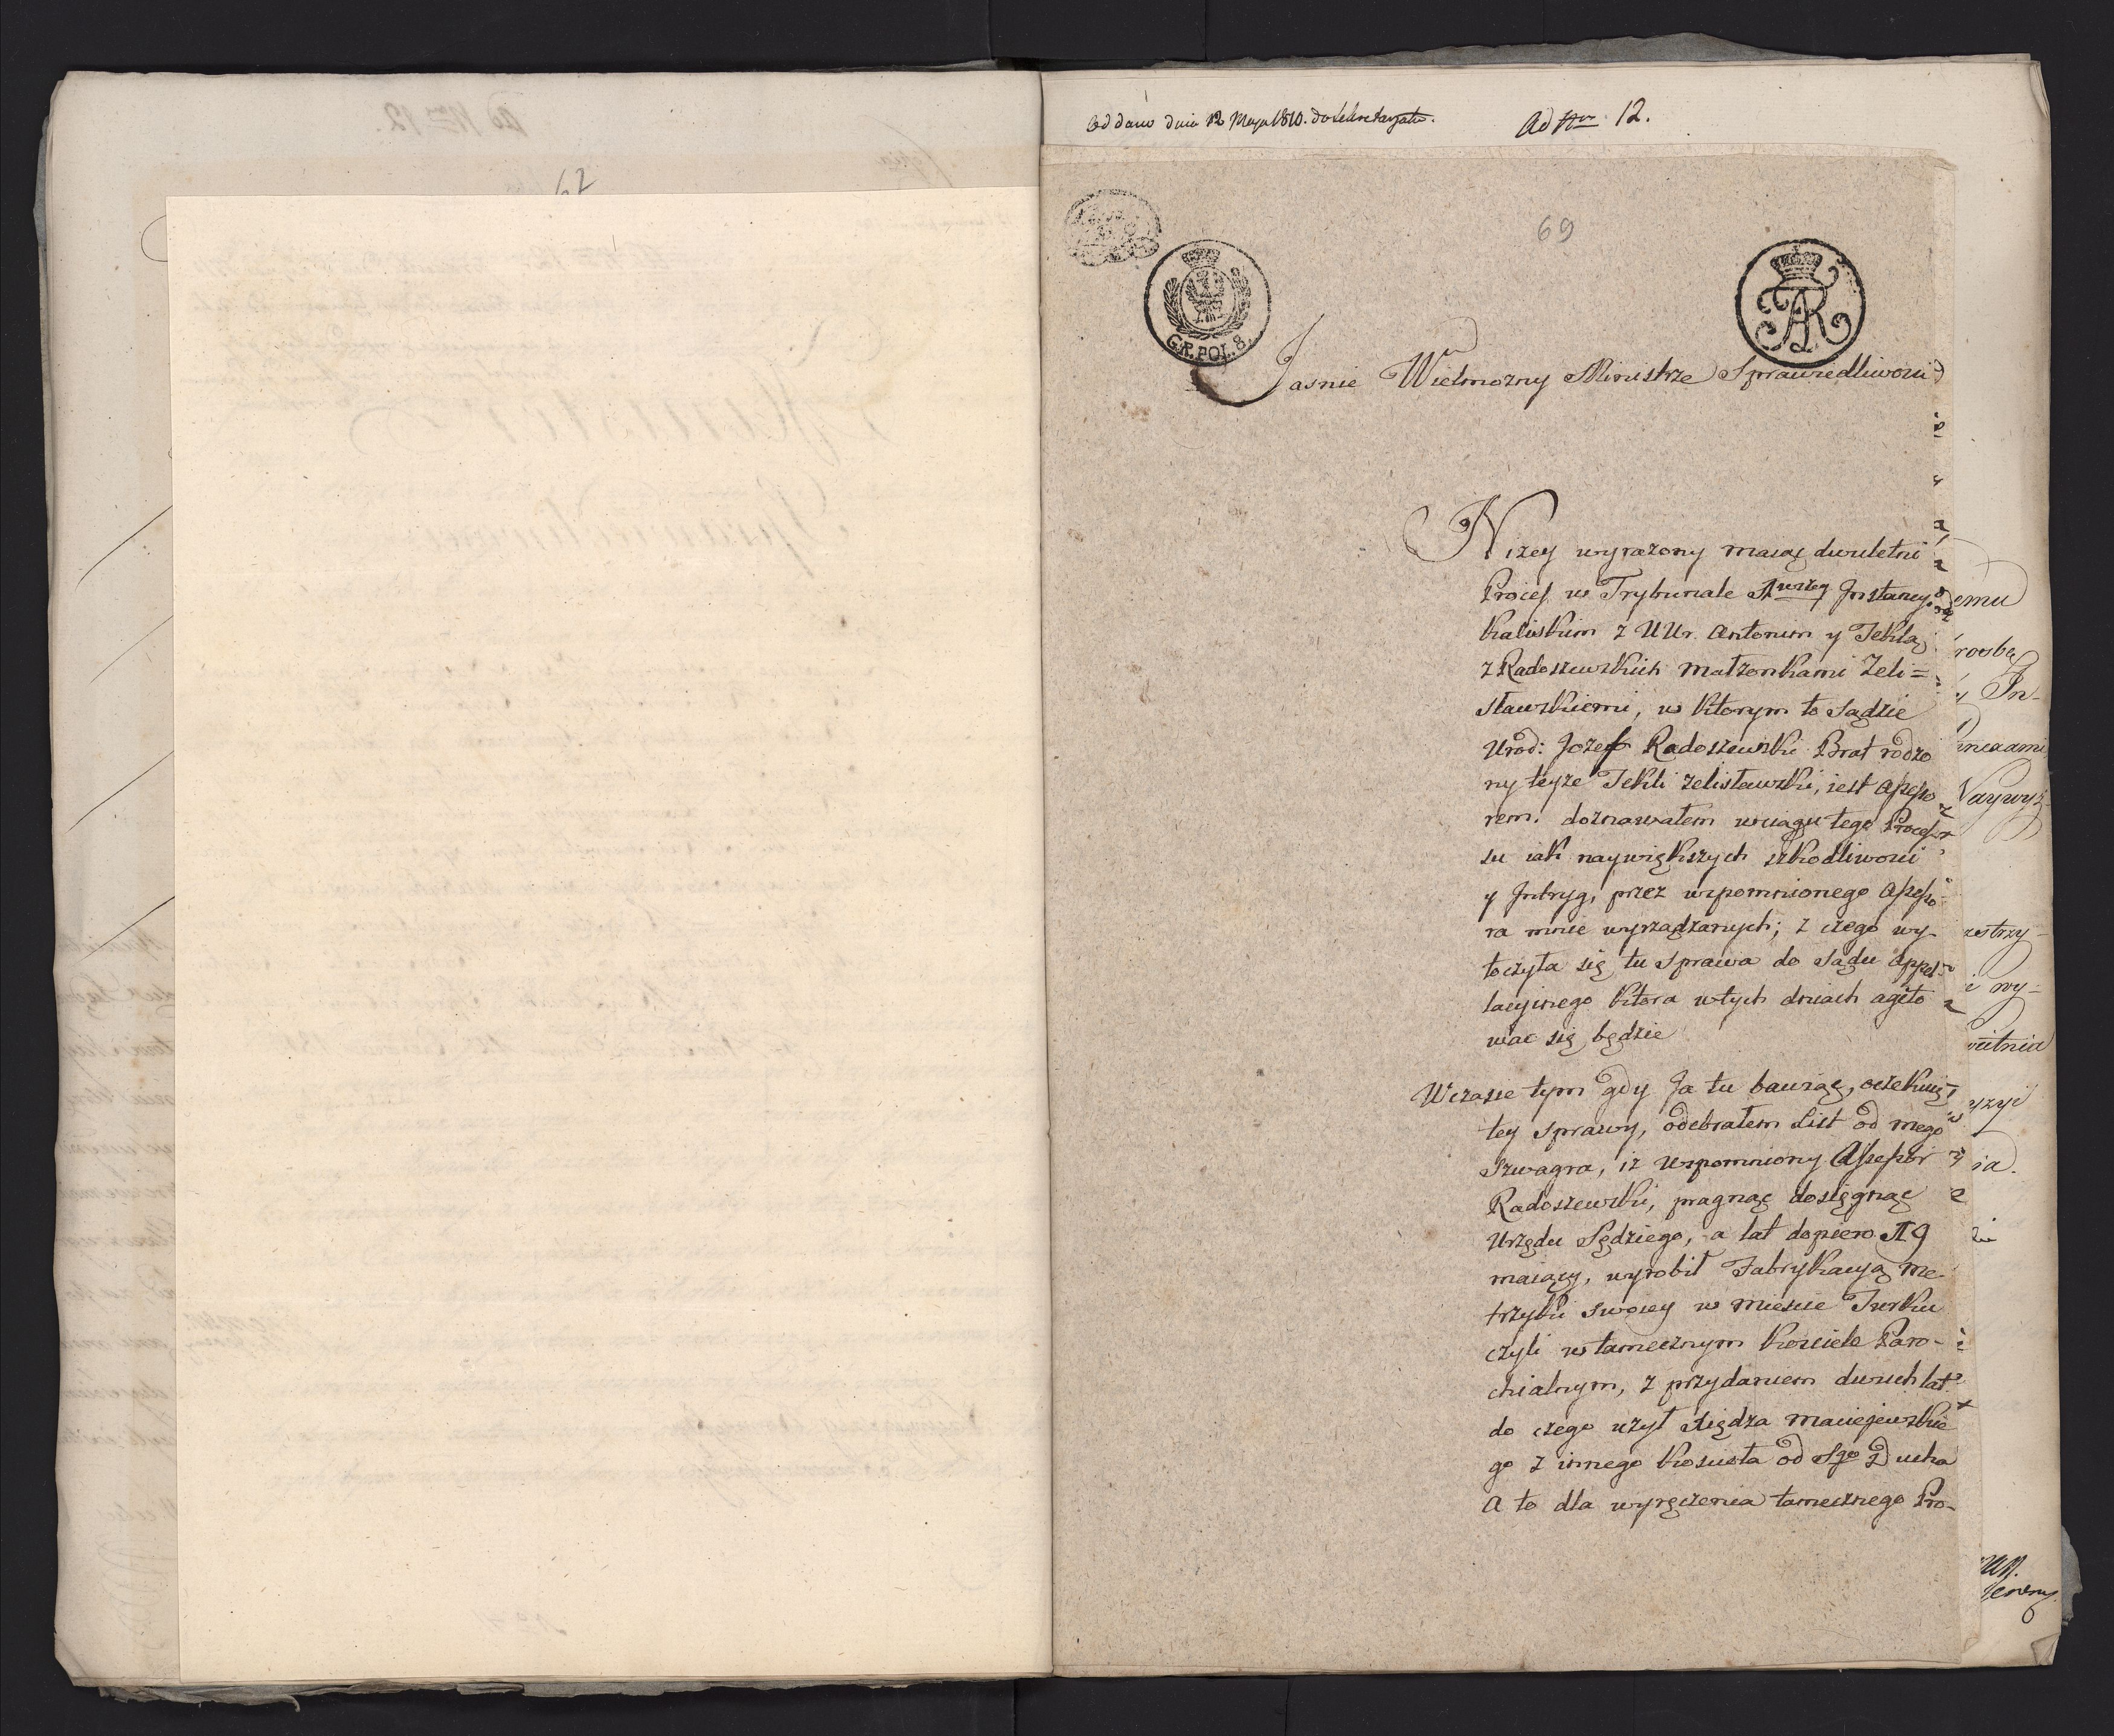 62
Oddano dnia 12 Maja 1810. do Sekretaryatu.
Ad Nr 12.
69
G.R. POL. 8.
AR
Jasnie Wielmozny Ministrze Sprawiedliwosci
Nizey wyrazony maiąc dwuletni
Proceſ w Trybunale 1wszey Jnstancyi
Kaliskim z UUr. Antonim y Teklą
z Radoszewskich Małzonkami Zeli=
sławskiemi, w ktorym to Sądzie
Urod: Jozef Radoszewski Brat rodzo
ny teyze Tekli Zelisławski, iest Aſseſso
rem. doznawałem wciągu tego Proceſ
su iak naywiękrzych szkodliwosci
y Jntryg, przez wspomnionego Aſseſso
ra mnie wyrządzanych; z czego wy
toczyła się tu Sprawa do Sądu Appel
lacyinego ktora w tych dniach agito
wac się będzie
W czasie tym gdy Ja tu bawiąc, oczekuię
tey Sprawy, odebrałem List od mego
Szwagra, iz Wspomniony Aſseſsor
Radoszewski, pragnąc dosięgnąc
Urzędu Sędziego, a lat dopiero 19
maiący, wyrobił Fabrykacyą me
trzyki swoiey w miescie Turku
czyli w tamecznym Kosciele Paro-
chialnym, z przydaniem dwuch lat
do czego uzył Xiędza Macieiewskie
go z innego Koscioła od Sgo Ducha
A to dla wyręczenia tamecznego Pro-
emu
In-
nnexami
Naywyż
estrzy-
i wy=
ietnia
ia.